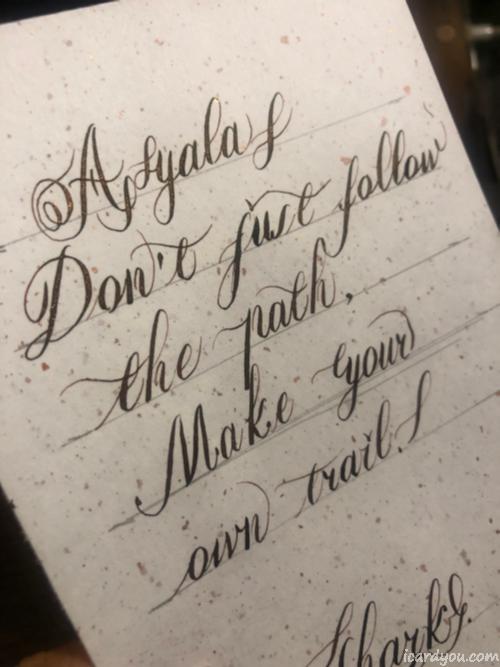 Asyala!
Don't just follow
the path,
Make your
own trail!
icardyou.com